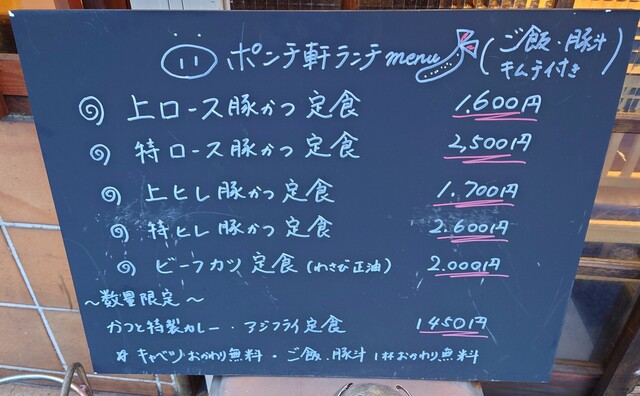 ポンチ軒ランチmenu (ご飯・豚汁
キムチ付き)
上ロース豚かつ定食 1.600円
特ロース豚かつ定食 2,500円
上ヒレ豚かつ定食 1.700円
特ヒレ豚かつ定食 2.600円
ビーフカツ定食(わさび正油) 2.000円
〜数量限定〜
かつと特製カレー・アジフライ定食 1450円
# キャベツおかわり無料・ご飯、豚汁1杯おかわり無料